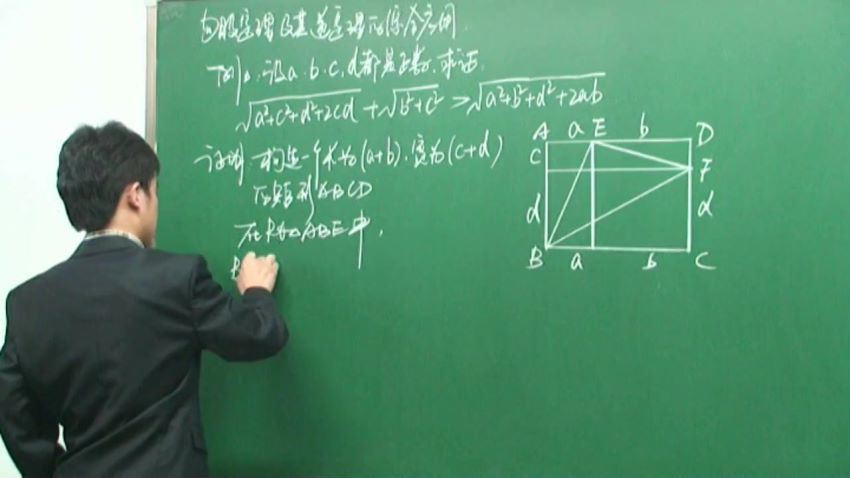 勾股定理及其逆定理的综合应用
例1. 设a.b.c.d都是正数. 求证
√a²+c²+d²+2cd + √b²+c² > √a²+b²+d²+2ab
证明: 构造一个长为(a+b). 宽为(c+d)
的矩形ABCD
在Rt△ABE中,
B
A a E b D
C F
d d
B a b C